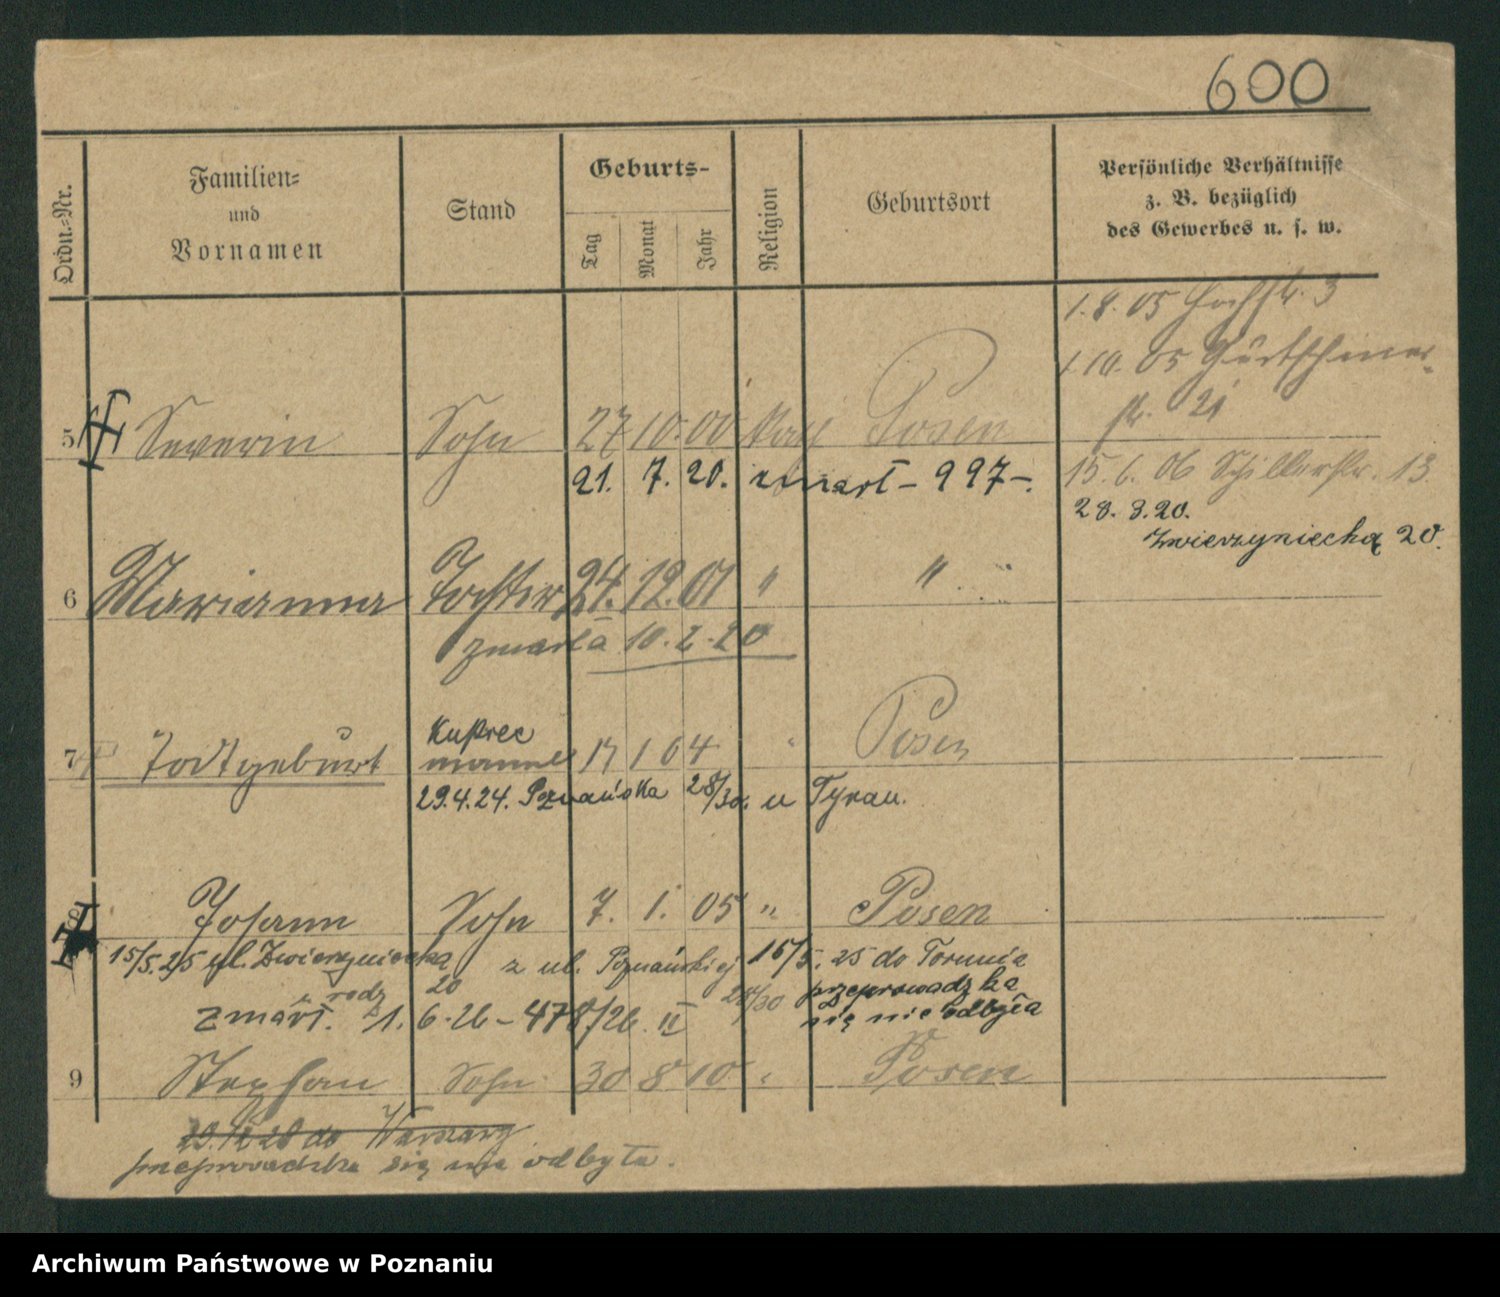 600
Ordn.-Nr.
Familien-
und
Vornamen
Stand
Geburts-
Tag
Monat
Jahr
Religion
Geburtsort
Persönliche Verhältnisse
z. B. bezüglich
des Gewerbes u. s. w.
1.8.05 Hochstr. 3
1.10.05 Gürtschiner-
str. 21
5 Severin Sohn 27 10. 00 kath Posen
15. 6. 06 Schillerstr. 13
21. 7. 20. zmarł – 997 –.
28. 8. 20.
Zwierzyniecką 20.
6 Marianna Tochter 24. 12. 01 " "
zmarła 10. 2. 20
7 Todtgeburt 17 1 04 " Posen
29.4.24. Poznańska 28/30. u Tyrau.
8 Johann Sohn 7. 1. 05 " Posen
15/5.25 ul. Zwierzyniecka 20 z ul. Poznańskiej 28/30 16/5. 25 do Torunia
przeprowadzka
się nie odbyła
zmarł. 1. 6. 26 – 478/26. II
9 Stephan Sohn 30 8 10 " Posen
29.12 28 do Warszawy
przeprowadzka się nie odbyła.
Archiwum Państwowe w Poznaniu